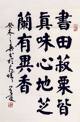 書田菽粟皆
真味心地芝
蘭有異香